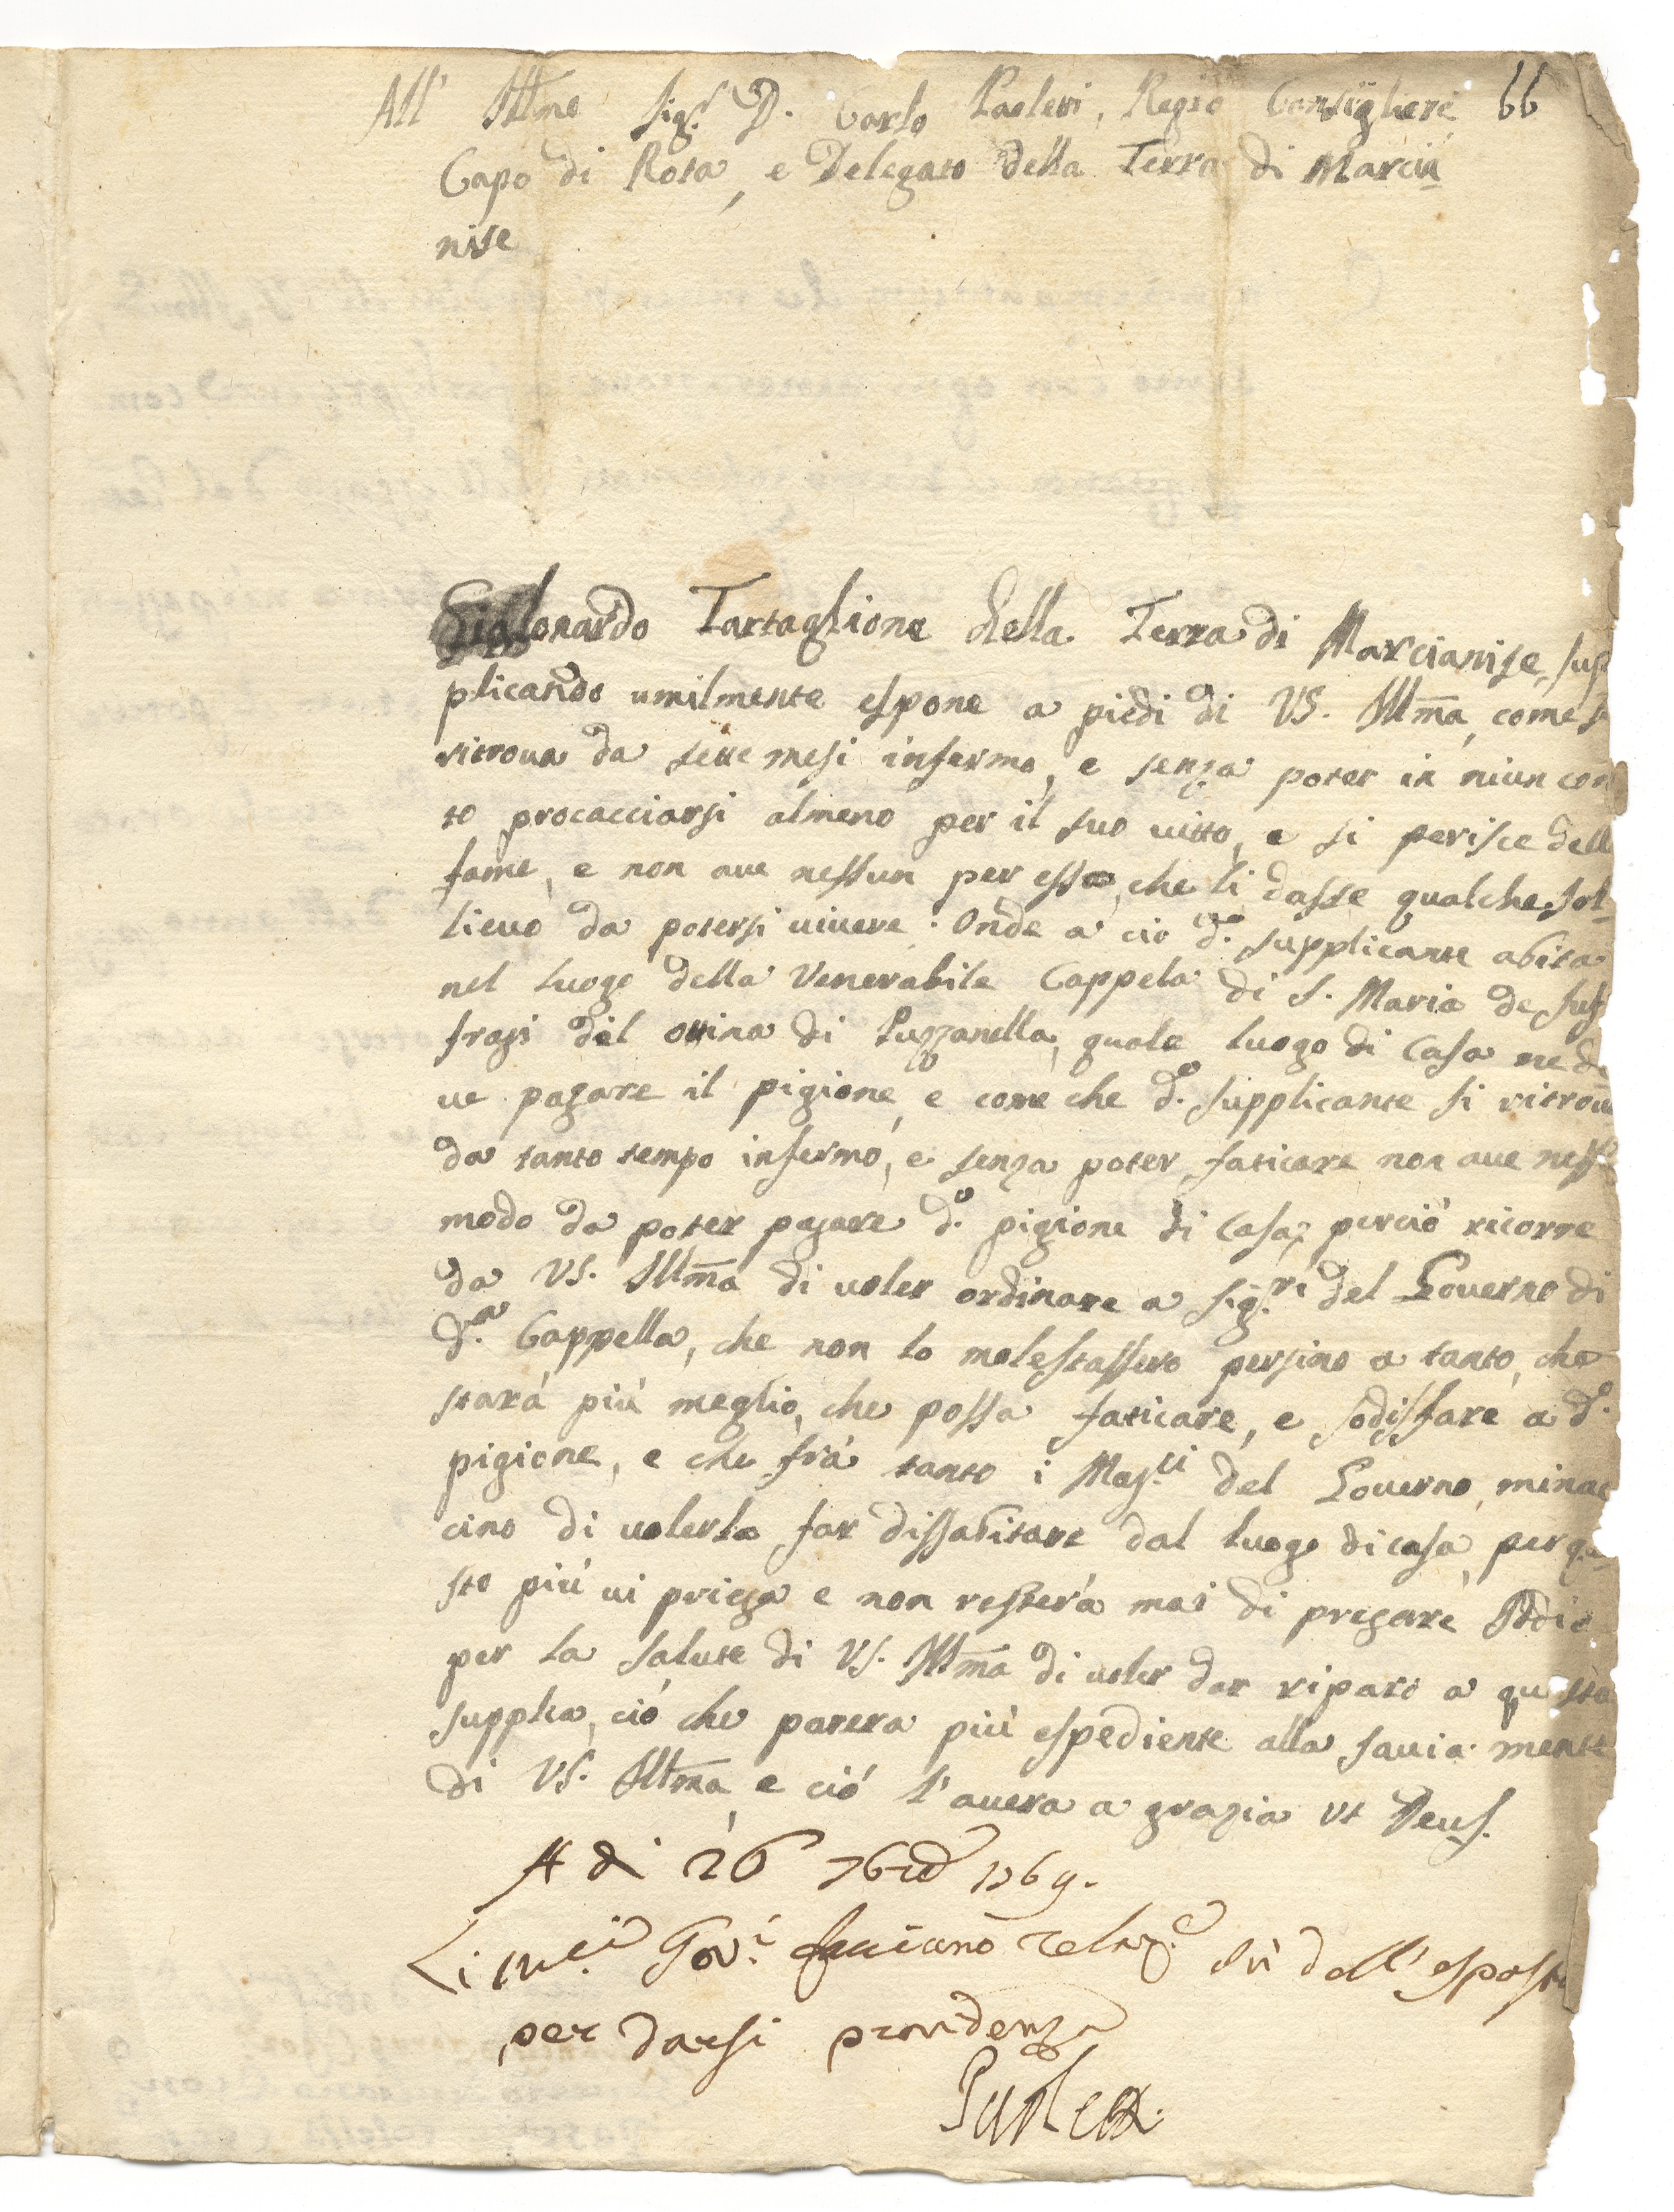 All' Illmo Sig.r D. Carlo Paoleri, Regio Consigliere 66
Capo di Rota, e Delegato della Terra di Marcia
nise
Lonardo Tartaglione della Terra di Marcianise, sup
plicando umilmente espone a piedi di VS. Illma, come s
ritroua da sette mesi infermo, e senza poter in niun con
to procacciarsi almeno per il suo uitto, e si perisce dell
fame, e non aue nessun per esso, che li dasse qualche sol
lieuo da potersi uiuere. Onde a cio d.o supplicante abita
nel luogo della Venerabile Cappela di S. Maria de suf
fragi del di Puzzanella, quale luogo di Casa ne de
ue pagare il pigione, e come che d.o supplicante si ritroua
da tanto tempo infermo, e senza poter faticare non aue ness.o
modo da poter pagare d.o pigione di Casa, perciò ricorre
da VS. Illma di uoler ordinare a Sig.ri del Gouerno di
d.a Cappella, che non lo molestassero persino a tanto, che
starà più meglio, che possa faticare, e sodisfare a d.o
pigione, e che frà tanto i Mag.ci del Gouerno, minac
cino di uolerlo far dissabitare dal luogo di casa, per que
sto più ui priega e non resterà mai di pregare Iddio
per la salute di VS. Illma di uoler dar riparo a questa
supplica, ciò che parera più espediente alla sauia mente
di VS. Illma, e ciò l'auera a grazia ut Deus.
A di 26 7bre 1769.
Li M.ci Gov.i facciano relaz.e sù dell'esposto
per darsi providenza